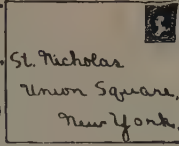 St. Nicholas
Union Square,
New York.